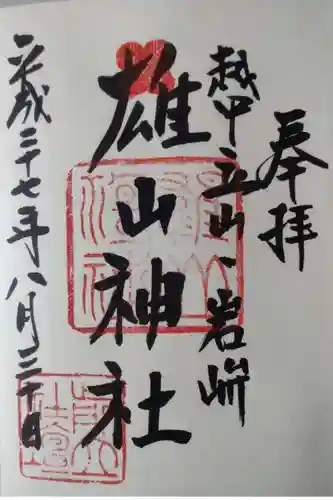 奉拝
越中立山・岩峅
雄山神社
平成二十七年八月三十日